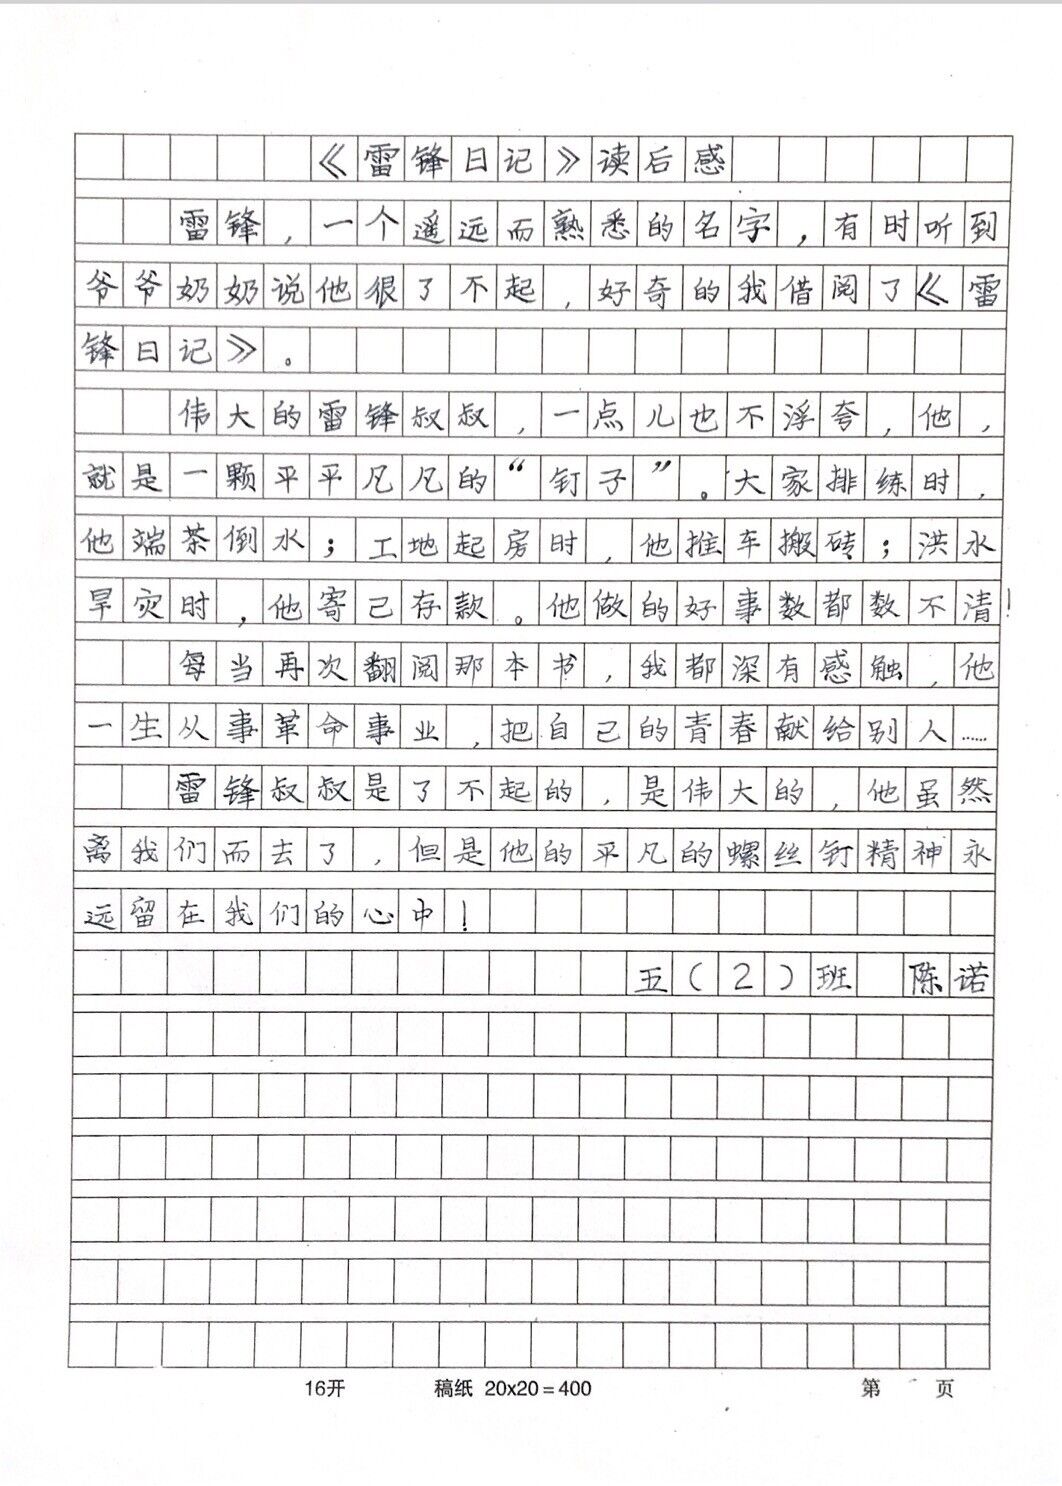 《雷锋日记》读后感
雷锋，一个遥远而熟悉的名字，有时听到
爷爷奶奶说他很了不起，好奇的我借阅了《雷
锋日记》。
伟大的雷锋叔叔，一点儿也不浮夸，他，
就是一颗平平凡凡的“钉子”。大家排练时，
他端茶倒水；工地起房时，他推车搬砖；洪水
旱灾时，他寄己存款。他做的好事数都数不清！
每当再次翻阅那本书，我都深有感触，他
一生从事革命事业，把自己的青春献给别人……
雷锋叔叔是了不起的，是伟大的，他虽然
离我们而去了，但是他的平凡的螺丝钉精神永
远留在我们的心中！
五（2）班 陈诺
16开 稿纸 20x20=400 第 页